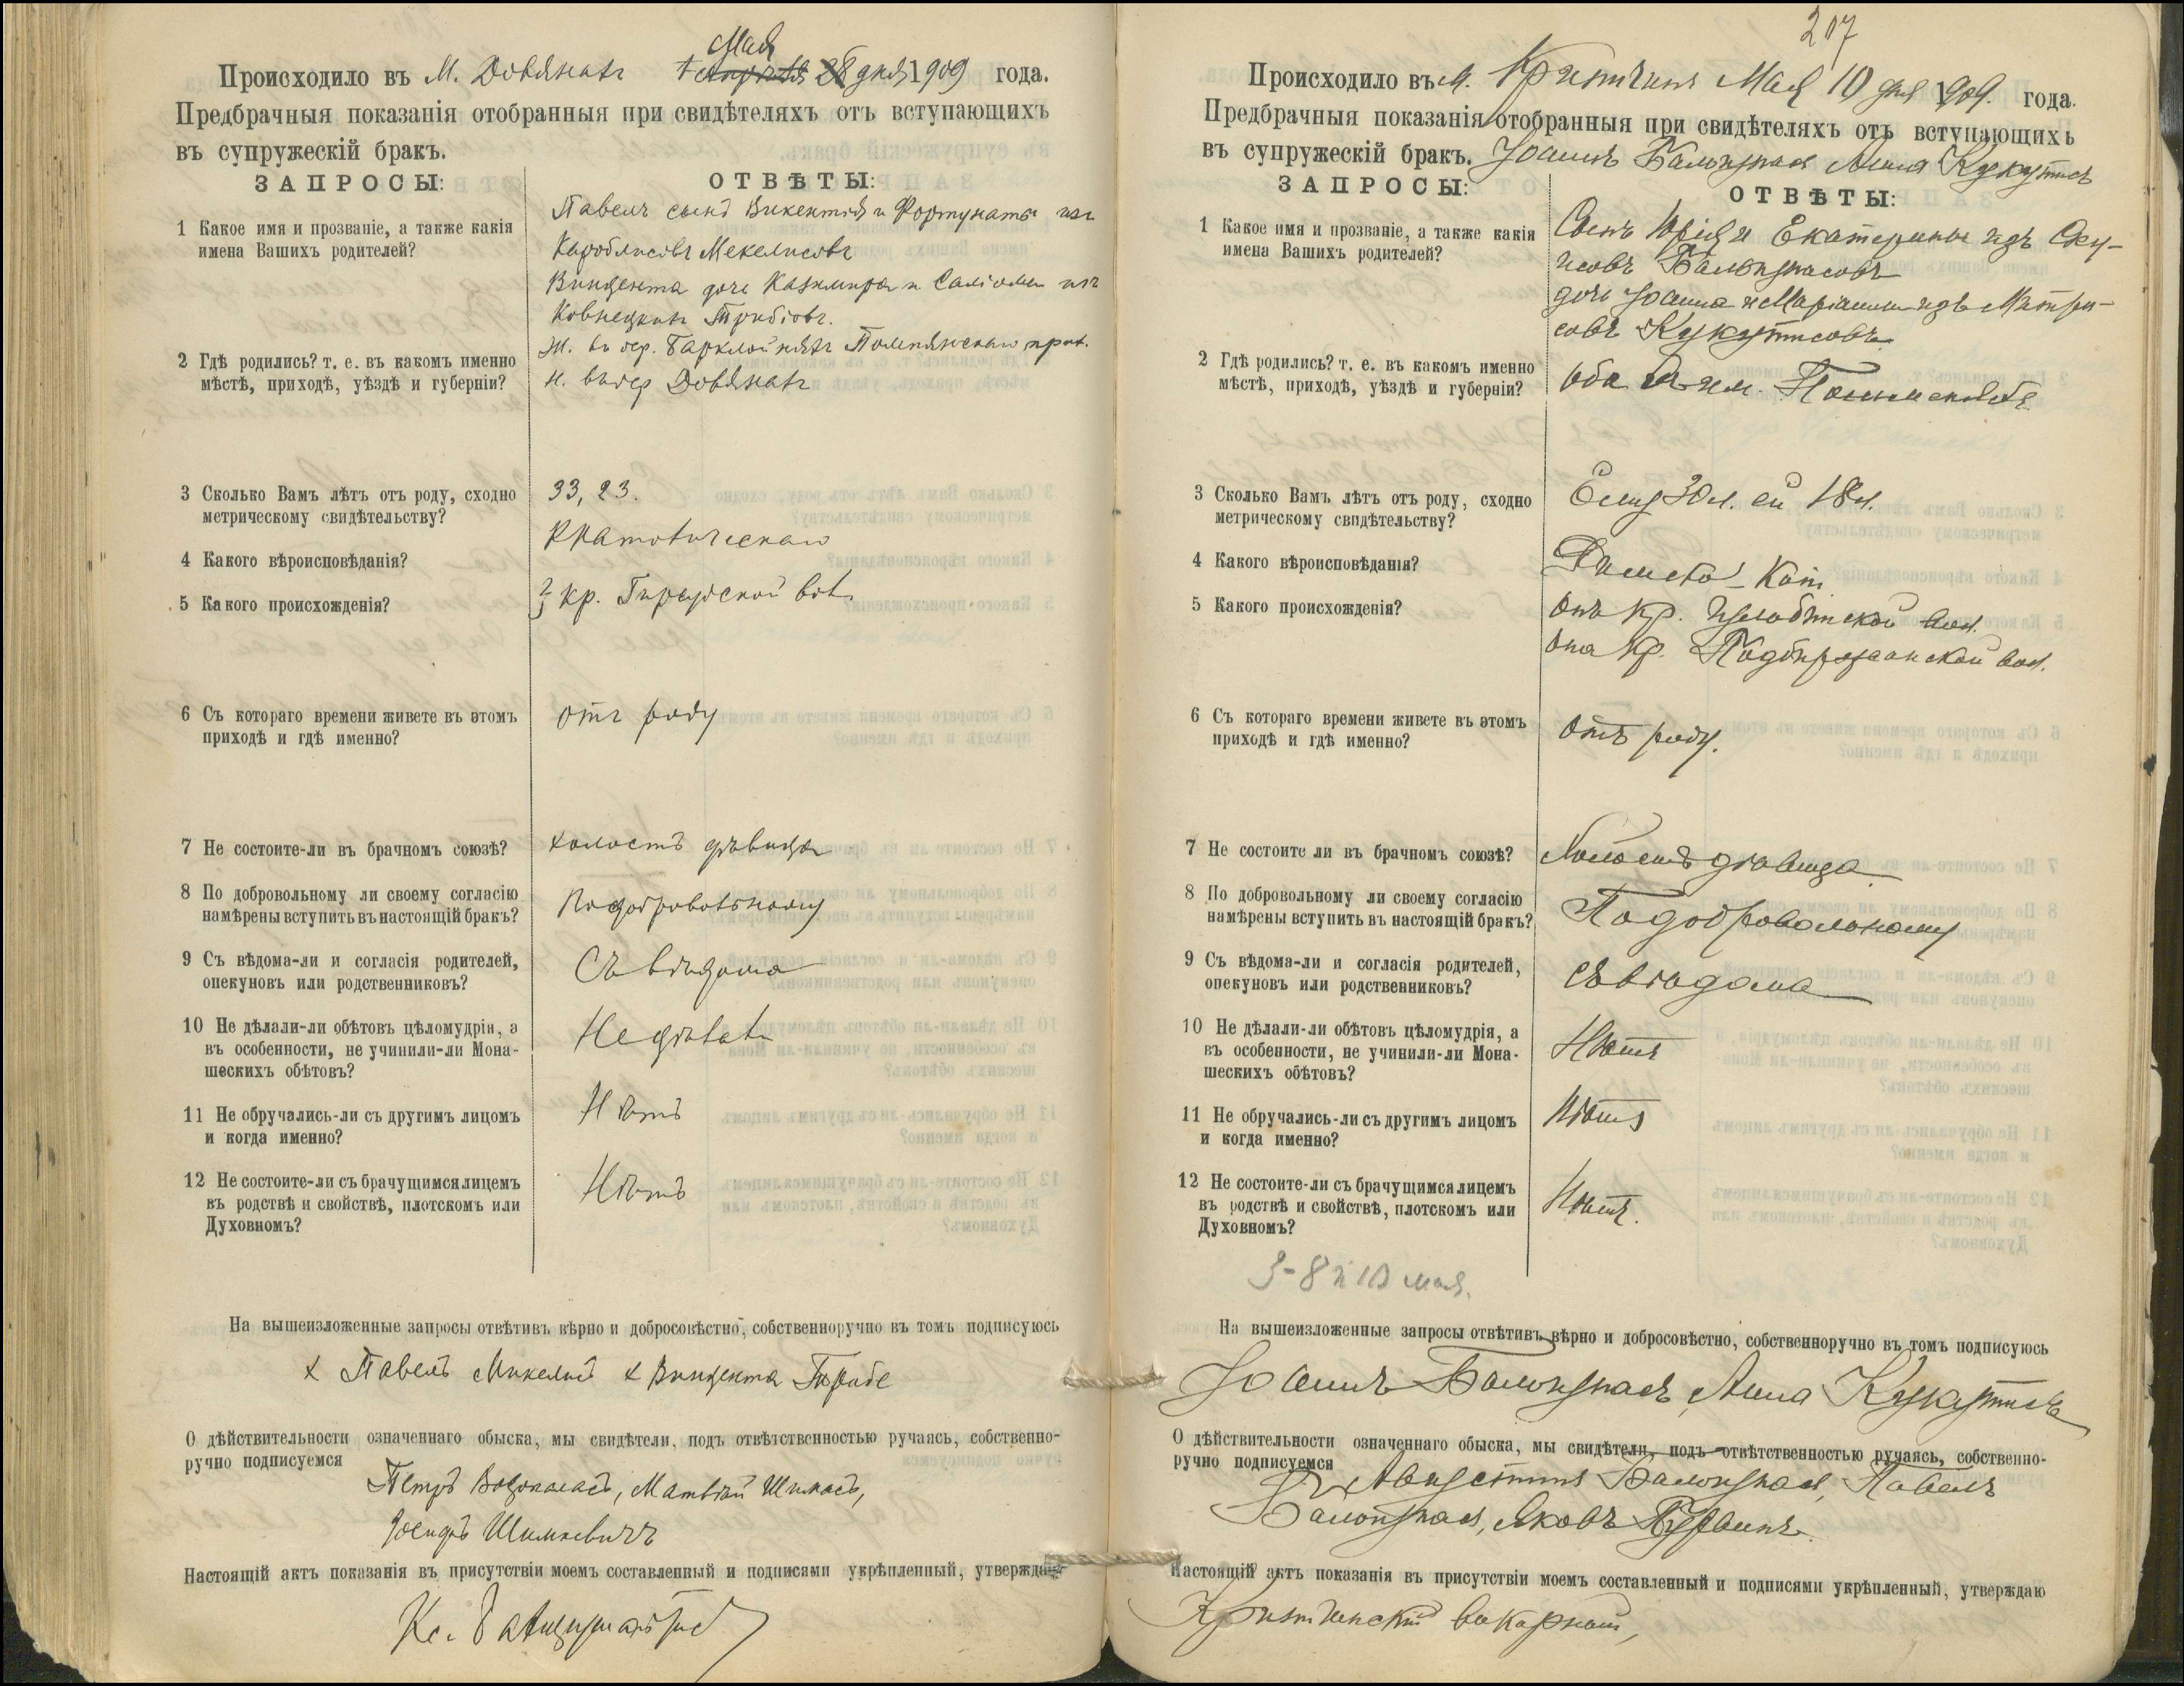 Мая
Происходило въ М. Довянахъ 28 дня 1909 года.
Предбрачныя показанія отобранныя при свидѣтеляхъ отъ вступающихъ
въ супружескій бракъ.
ЗАПРОСЫ: ОТВѢТЫ:
1 Какое имя и прозваніе, а также какія
имена Вашихъ родителей?
Павелъ сынъ Викентія и Фортунаты изъ
Мекелисовъ
Винцента дочь Казимира и Саліомеи изъ
2 Гдѣ родились? т. е. въ какомъ именно
мѣстѣ, приходѣ, уѣздѣ и губерніи?
Ж. въ дер.
Н. въ дер Довянахъ
3 Сколько Вамъ лѣтъ отъ роду, сходно
метрическому свидѣтельству?
33, 23.
4 Какого вѣроисповѣданія?
Ркатолическаго
5 Какого происхожденія?
кр. вол.
6 Съ котораго времени живете въ этомъ
приходѣ и гдѣ именно?
отъ роду
7 Не состоите-ли въ брачномъ союзѣ?
холостъ дѣвица
8 По добровольному ли своему согласію
намѣрены вступить въ настоящій бракъ?
По добровольному
9 Съ вѣдома-ли и согласія родителей,
опекуновъ или родственниковъ?
Съ вѣдома
10 Не дѣлали-ли обѣтовъ цѣломудрія, а
въ особенности, не учинили-ли Мона-
шескихъ обѣтовъ?
Не дѣлали
11 Не обручались-ли съ другимъ лицомъ
и когда именно?
Нѣтъ
12 Не состоите-ли съ брачущимся лицемъ
въ родствѣ и свойствѣ, плотскомъ или
Духовномъ?
Нѣтъ
На вышеизложенные запросы отвѣтивъ вѣрно и добросовѣстно, собственноручно въ томъ подписуюсь
х Павелъ Микелисъ х Винцента
О дѣйствительности означеннаго обыска, мы свидѣтели, подъ отвѣтственностью ручаясь, собственно-
ручно подписуемся
Петръ Матвѣй
Іосифъ Шимкевичъ
Настоящій актъ показанія въ присутствіи моемъ составленный и подписями укрѣпленный, утверждаю
Кс.
207
Происходило въ м. Крипчинъ Мая 10 дня 1909. года.
Предбрачныя показанія отобранныя при свидѣтеляхъ отъ вступающихъ
въ супружескій бракъ. Іоаннъ Бальчунасъ Анна Кукутисъ
ЗАПРОСЫ: ОТВѢТЫ:
1 Какое имя и прозваніе, а также какія
имена Вашихъ родителей?
Сынъ Юрія и Екатерины изъ
дочь Іоанна и Маріанны изъ
совъ Кукутисовъ.
2 Гдѣ родились? т. е. въ какомъ именно
мѣстѣ, приходѣ, уѣздѣ и губерніи?
оба въ им.
3 Сколько Вамъ лѣтъ отъ роду, сходно
метрическому свидѣтельству?
Ему 30 л. ей 18 л.
4 Какого вѣроисповѣданія?
Римско-Кат.
5 Какого происхожденія?
Онъ кр. вол.
Она кр. Подбирожанской вол.
6 Съ котораго времени живете въ этомъ
приходѣ и гдѣ именно?
Отъ роду.
7 Не состоите ли въ брачномъ союзѣ?
Холостъ дѣвица
8 По добровольному ли своему согласію
намѣрены вступить въ настоящій бракъ?
По добровольному
9 Съ вѣдома-ли и согласія родителей,
опекуновъ или родственниковъ?
Съ вѣдома
10 Не дѣлали-ли обѣтовъ цѣломудрія, а
въ особенности, не учинили-ли Мона-
шескихъ обѣтовъ?
Нѣтъ
11 Не обручались-ли съ другимъ лицомъ
и когда именно?
Нѣтъ
12 Не состоите-ли съ брачущимся лицемъ
въ родствѣ и свойствѣ, плотскомъ или
Духовномъ?
Нѣтъ.
3-8 и 10 мая.
На вышеизложенные запросы отвѣтивъ вѣрно и добросовѣстно, собственноручно въ томъ подписуюсь
Іоаннъ Бальчунасъ, Анна Кукутисъ
О дѣйствительности означеннаго обыска, мы свидѣтели, подъ отвѣтственностью ручаясь, собственно-
ручно подписуемся
Августинъ Бальчунасъ, Павелъ
Бальчунасъ, Яковъ
Настоящій актъ показанія въ присутствіи моемъ составленный и подписями укрѣпленный, утверждаю